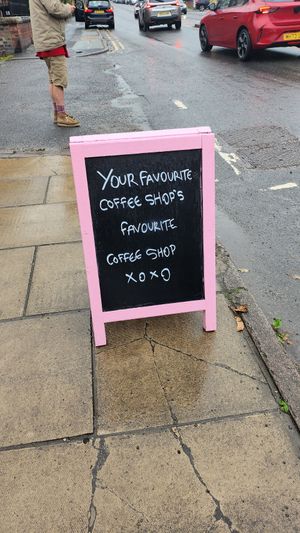 YOUR FAVOURITE
COFFEE SHOP'S
FAVOURITE
COFFEE SHOP
XOXO